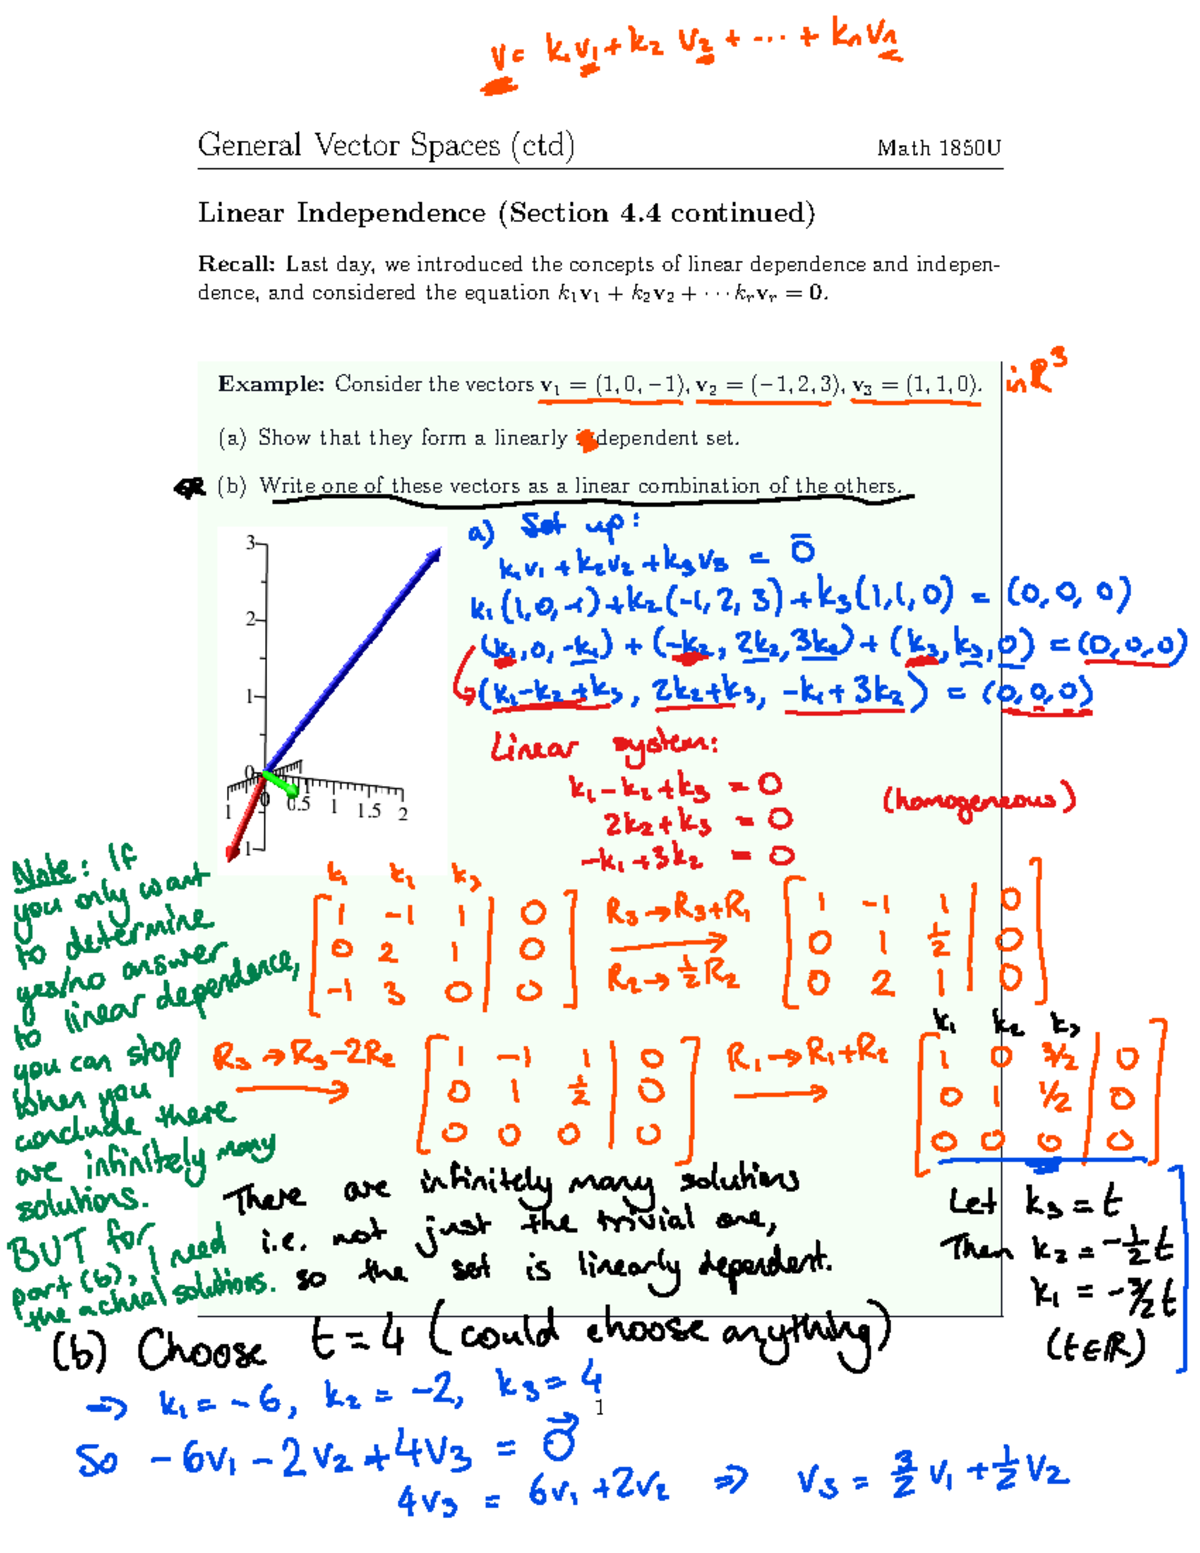 v = k₁v₁ + k₂ v₂ + ... + kₙvₙ
General Vector Spaces (ctd) Math 1850U
Linear Independence (Section 4.4 continued)
Recall: Last day, we introduced the concepts of linear dependence and indepen-
dence, and considered the equation k₁v₁ + k₂v₂ + ··· kᵣvᵣ = 0.
Example: Consider the vectors v₁ = (1, 0, −1), v₂ = (−1, 2, 3), v₃ = (1, 1, 0). in R³
(a) Show that they form a linearly dependent set.
(b) Write one of these vectors as a linear combination of the others.
a) Set up:
k₁v₁ + k₂v₂ + k₃v₃ = 0̅
k₁(1,0,-1)+k₂(-1,2,3)+k₃(1,1,0) = (0,0,0)
(k₁,0,-k₁) + (-k₂, 2k₂,3k₂) + (k₃,k₃,0) = (0,0,0)
(k₁-k₂+k₃, 2k₂+k₃, -k₁+3k₂) = (0,0,0)
3
2
1
0
1 0 0.5 1 1.5 2
1
Linear system:
k₁-k₂+k₃ = 0
2k₂+k₃ = 0
-k₁+3k₂ = 0
(homogeneous)
Note: If
you only want
to determine
yes/no answer
to linear dependence,
you can stop
when you
conclude there
are infinitely many
solutions.
BUT for
part (b), I need
the actual solutions.
k₁ k₂ k₃
1 -1 1 | 0
0 2 1 | 0
-1 3 0 | 0
R₃→R₃+R₁
R₂→½R₂
1 -1 1 | 0
0 1 ½ | 0
0 2 1 | 0
R₃→R₃-2R₂
1 -1 1 | 0
0 1 ½ | 0
0 0 0 | 0
R₁→R₁+R₂
k₁ k₂ k₃
1 0 3/2 | 0
0 1 1/2 | 0
0 0 0 | 0
There are infinitely many solutions
i.e. not just the trivial one,
so the set is linearly dependent.
Let k₃ = t
Then k₂ = -½t
k₁ = -3/2t
(t∈R)
(b) Choose t=4 (could choose anything)
⇒ k₁ = -6, k₂ = -2, k₃ = 4
1
So -6v₁ - 2v₂ + 4v₃ = 0⃗
4v₃ = 6v₁ + 2v₂ ⇒ v₃ = 3/2 v₁ + ½ v₂